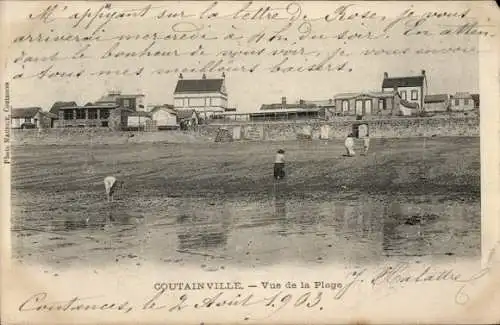 M'appuyant sur la lettre de Rose, je vous
arriverai mercredi à 4h du soir. En atten-
dant le bonheur de vous voir, je vous envoie
à tous mes meilleurs baisers.
COUTAINVILLE. - Vue de la Plage
Coutances, le 2 Août 1903.
Photo Maine, Coutances